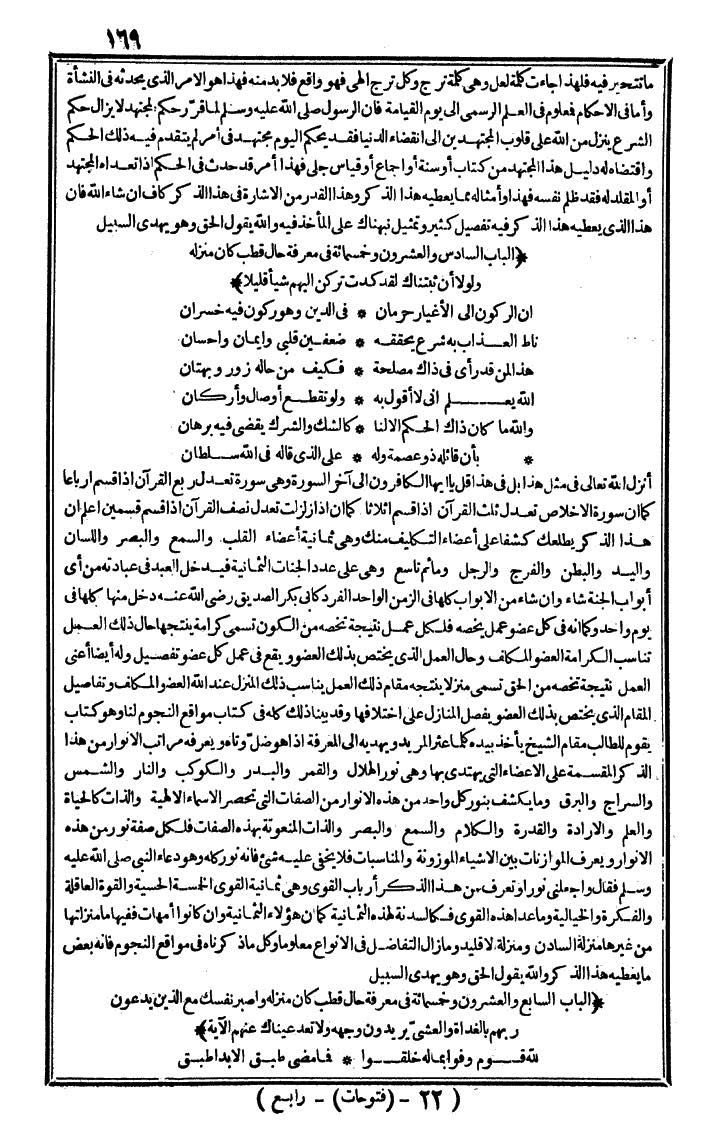 ١٦٩
ما تتحير فيه فلهذا جاءت كلمة لعل وهي كلمة ترج وكل ترج الهى فهو واقع فلابد منه فهذا هو الامر الذى يحدثه فى النشأة
وأما فى الاحكام فعلوم فى العلم الرسمى الى يوم القيامة فان الرسول صلى الله عليه وسلم لما قرّر حكم المجتهد لا يزال حكم
الشرع ينزل من الله على قلوب المجتهدين الى انقضاء الدنيا فقد يحكم اليوم مجتهد فى أمر لم يتقدم فيه ذلك الحكم
واقتضاه له دليل هذا المجتهد من كتاب أو سنة أو اجماع أو قياس جلى فهذا أمر قد حدث فى الحكم اذا تعداه المجتهد
أو المقلد له فقد ظلم نفسه فهذا وأمثاله مما يعطيه هذا الذكر وهذا القدر من الاشارة فى هذا الذكر كاف ان شاء الله فان
هذا الذى يعطيه هذا الذكر فيه تفصيل كثير وتمثيل نبهناك على المأخذ فيه والله يقول الحق وهو يهدى السبيل
﴿الباب السادس والعشرون وخمسمائة فى معرفة حال قطب كان منزله
ولولا أن ثبتناك لقد كدت تركن اليهم شيأ قليلا﴾
ان الركون الى الأغيار حرمان * فى الدين وهو ركون فيه خسران
ناط العذاب به شرع يحققه * ضعفين قلبى وايمان واحسان
هذا لمن قد رأى فى ذاك مصلحة * فكيف من حاله زور وبهتان
الله يعلم انى لا أقول به * ولو تقطع أوصال وأركان
والله ما كان ذاك الحكم الا لنا * كالشك والشرك يقضى فيه برهان
* بأن قائله ذو عصمة وله * على الذى قاله فى الله سلطان
أنزل الله تعالى فى مثل هذا بل فى هذا قل يا ايها الكافرون الى آخر السورة وهى سورة تعدل ربع القرآن اذا قسم ارباعا
كما ان سورة الاخلاص تعدل ثلث القرآن اذا قسم اثلاثا كما ان اذا زلزلت تعدل نصف القرآن اذا قسم قسمين اعلم ان
هذا الذكر يطلعك كشفا على أعضاء التكليف منك وهى ثمانية أعضاء القلب والسمع والبصر واللسان
واليد والبطن والفرج والرجل وماثم تاسع وهى على عدد الجنات الثمانية فيدخل العبد فى عبادته من أى
أبواب الجنة شاء وان شاء من الابواب كلها فى الزمن الواحد الفرد كابى بكر الصديق رضى الله عنه دخل منها كلها فى
يوم واحد وكما انه فى كل عضو عمل يخصه فلكل عمل نتيجة تخصه من الكون تسمى كرامة ينتجها حال ذلك العمل
تناسب الكرامة العضو المكلف وحال العمل الذى يختص بذلك العضو ويقع فى عمل كل عضو تفصيل وله أيضا أعنى
العمل نتيجة تخصه من الحق تسمى منزلا ينتجه مقام ذلك العمل يناسب ذلك المنزل عند الله العضو المكلف وتفاصيل
المقام الذى يختص بذلك العضو يفصل المنازل على اختلافها وقد بينا ذلك كله فى كتاب مواقع النجوم لنا وهو كتاب
يقوم للطالب مقام الشيخ يأخذ بيده كلما عثر المريد ويهديه الى المعرفة اذا هو ضل وتاه ويعرفه مراتب الانوار من هذا
الذكر المقسمة على الاعضاء التى يهتدى بها وهى نور الهلال والقمر والبدر والكوكب والنار والشمس
والسراج والبرق وما يكشف بنور كل واحد من هذه الانوار من الصفات التى تحصر الاسماء الالهية والذات كالحياة
والعلم والارادة والقدرة والكلام والسمع والبصر والذات المنعوتة بهذه الصفات فلكل صفة نور من هذه
الانوار ويعرف الموازنات بين الاشياء الموزونة والمناسبات فلا يخفى عليه شئ فانه نور كله وهو دعاء النبى صلى الله عليه
وسلم فقال واجعلنى نورا وتعرف من هذا الذكر أرباب القوى وهى ثمانية القوى الخمسة الحسية والقوة العاقلة
والفكرة والخيالية وما عدا هذه القوى فكالسدنة لهذه الثمانية كما ان هؤلاء الثمانية وان كانوا أمهات ففيها ما منزلتها
من غيرها منزلة السادن ومنزلة الاقليد ومازال التفاضل فى الانواع معلوما وكل ما ذكرناه فى مواقع النجوم فانه بعض
ما يعطيه هذا الذكر والله يقول الحق وهو يهدى السبيل
﴿الباب السابع والعشرون وخمسمائة فى معرفة حال قطب كان منزله واصبر نفسك مع الذين يدعون
ربهم بالغداة والعشىّ يريدون وجهه ولا تعد عيناك عنهم الآية﴾
لله قوم وفوا بما له خلقوا * فامضى طبق الا بدا طبق
( ٢٢ - (فتوحات) - رابع )